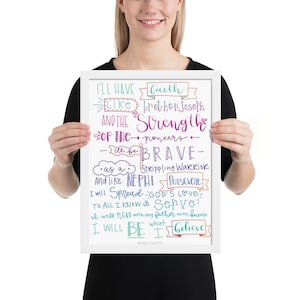 I'LL HAVE Faith
LIKE brother Joseph
AND THE Strength
OF THE pioneers
BRAVE
as a Stripling Warrior
And like NEPHI Persevere
I will Spread GOD'S LOVE
TO ALL I know & Serve!
I WILL BE what
I Believe